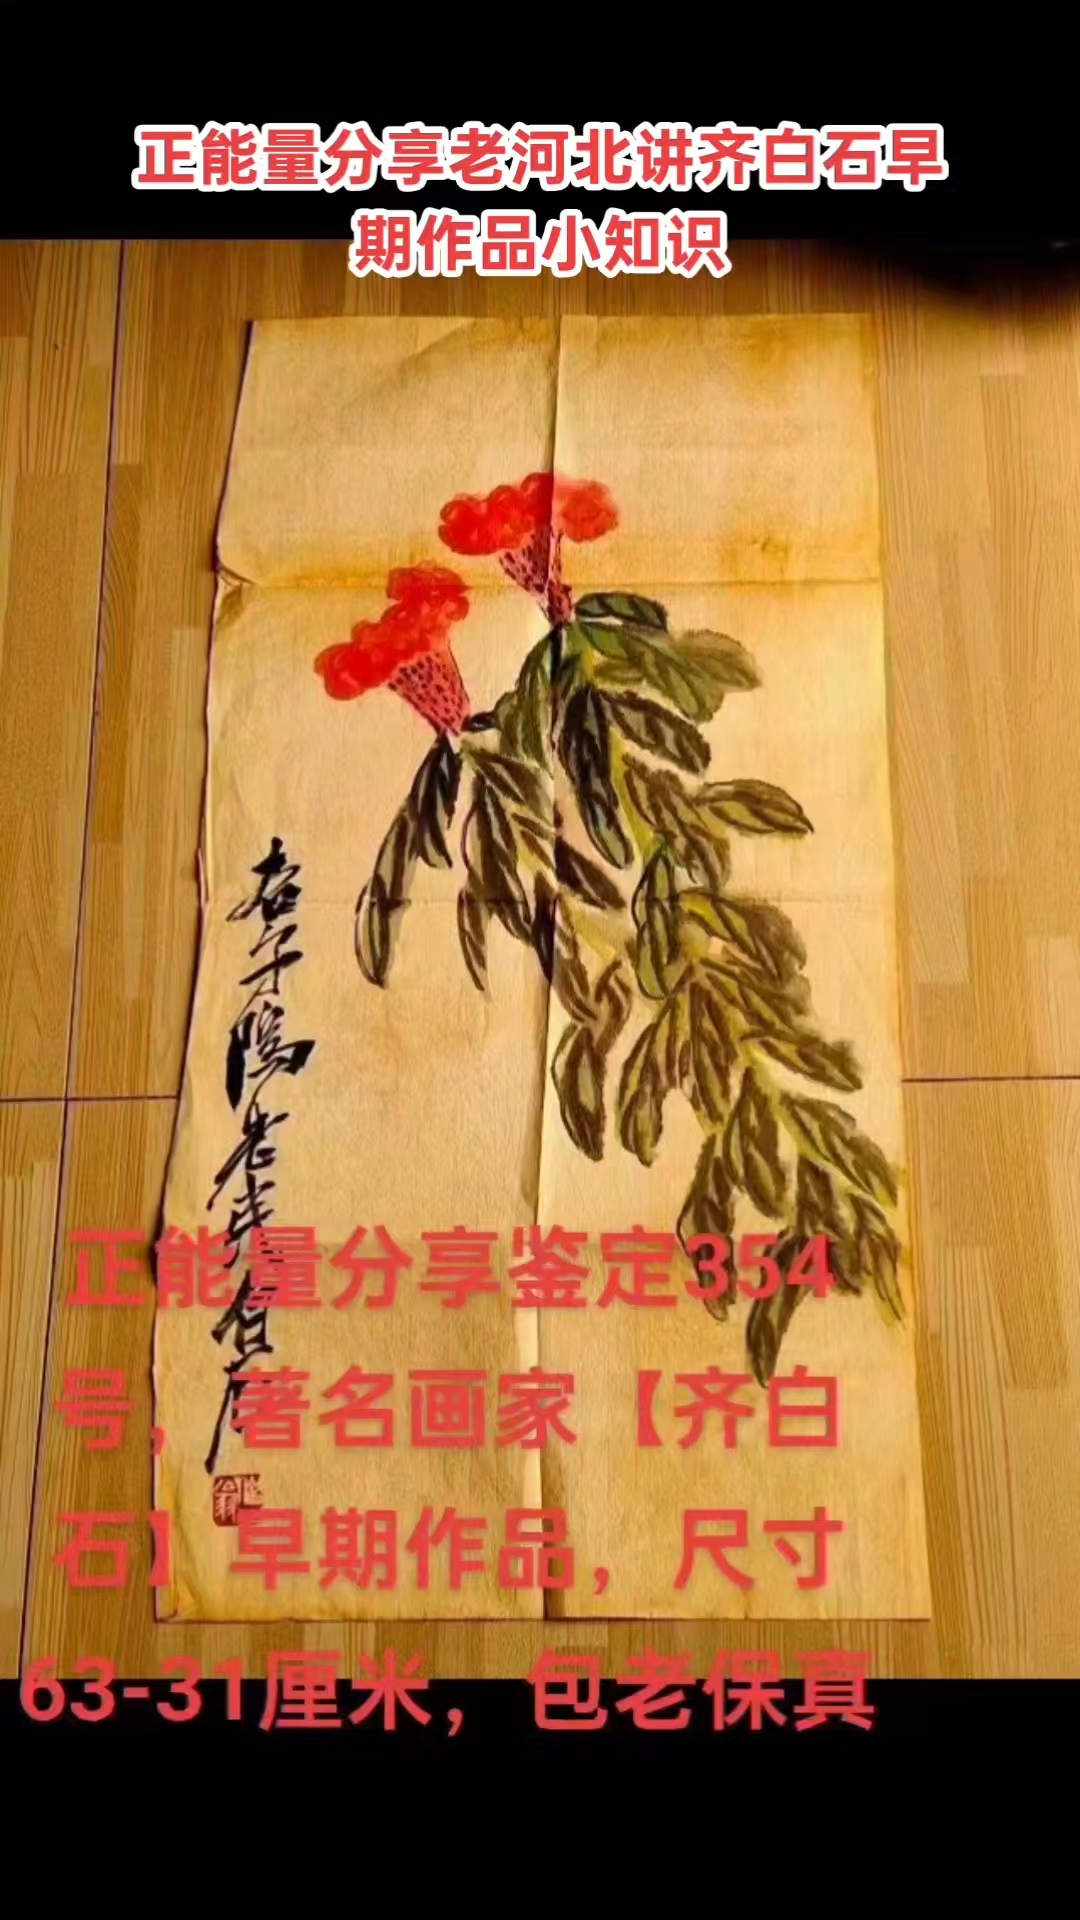 正能量分享老河北讲齐白石早
期作品小知识
杏子隖老民白石
正能量分享鉴定354
号，著名画家【齐白
石】早期作品，尺寸
63-31厘米，包老保真